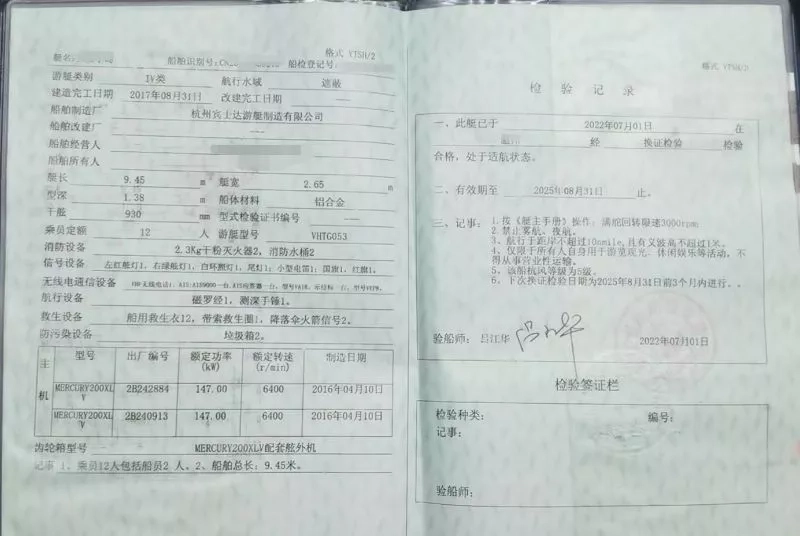 格式 YTSH/2
艇名: 船舶识别号: 船检登记号
游艇类别 IV类 航行水域 遮蔽
建造完工日期 2017年08月31日 改建完工日期 ——
船舶制造厂 杭州宾士达游艇制造有限公司
船舶改建厂 ——
船舶经营人
船舶所有人
艇长 9.45 m 艇宽 2.65 m
型深 1.38 m 船体材料 铝合金
干舷 930 mm 型式检验证书编号 ——
乘员定额 12 人 游艇型号 VHTG053
消防设备 2.3Kg干粉灭火器2，消防水桶2
信号设备 左红舷灯1，右绿舷灯1，白环照灯1，尾灯1；小型电笛1；国旗1，红旗1。
无线电通信设备
航行设备 磁罗经1，测深手锤1。
救生设备 船用救生衣12，带索救生圈1，降落伞火箭信号2。
防污染设备 垃圾箱2。
主机 型号 出厂编号 额定功率(kW) 额定转速(r/min) 制造日期
MERCURY200XLV 2B242884 147.00 6400 2016年04月10日
MERCURY200XLV 2B240913 147.00 6400 2016年04月10日
齿轮箱型号 MERCURY200XLV配套舷外机
记事 1、乘员12人包括船员2 人、2、船舶总长：9.45米。
格式 YTSH/2
检验记录
一、此艇已于 2022年07月01日 在
经 换证检验 检验
合格，处于适航状态。
二、有效期至 2025年08月31日 止。
三、记事： 1. 按《艇主手册》操作；满舵回转限速3000rpm；
2. 禁止雾航、夜航。
3、航行于距岸不超过10nmile,且有义波高不超过1米。
4、仅限于所有人自身用于游览观光、休闲娱乐等活动，不
得从事营业性运输。
5、该船抗风等级为5级。
6、下次换证检验日期为2025年8月31日前3个月内进行。。
验船师：吕江华 2022年07月01日
检验签证栏
检验种类： 编号：
记事：
验船师：